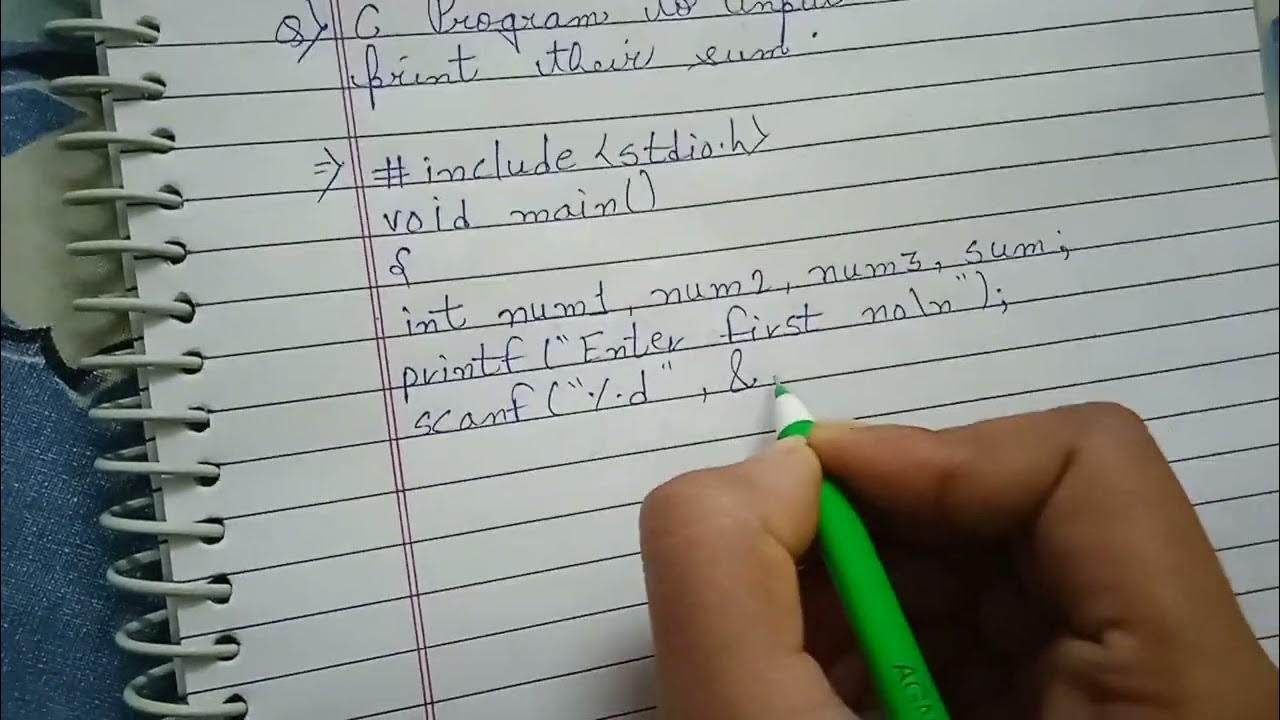 Q) C Program to input
print their sum.
=> #include <stdio.h>
void main()
{
int num1, num2, num3, sum;
printf ("Enter first no\n");
scanf ("%d", &